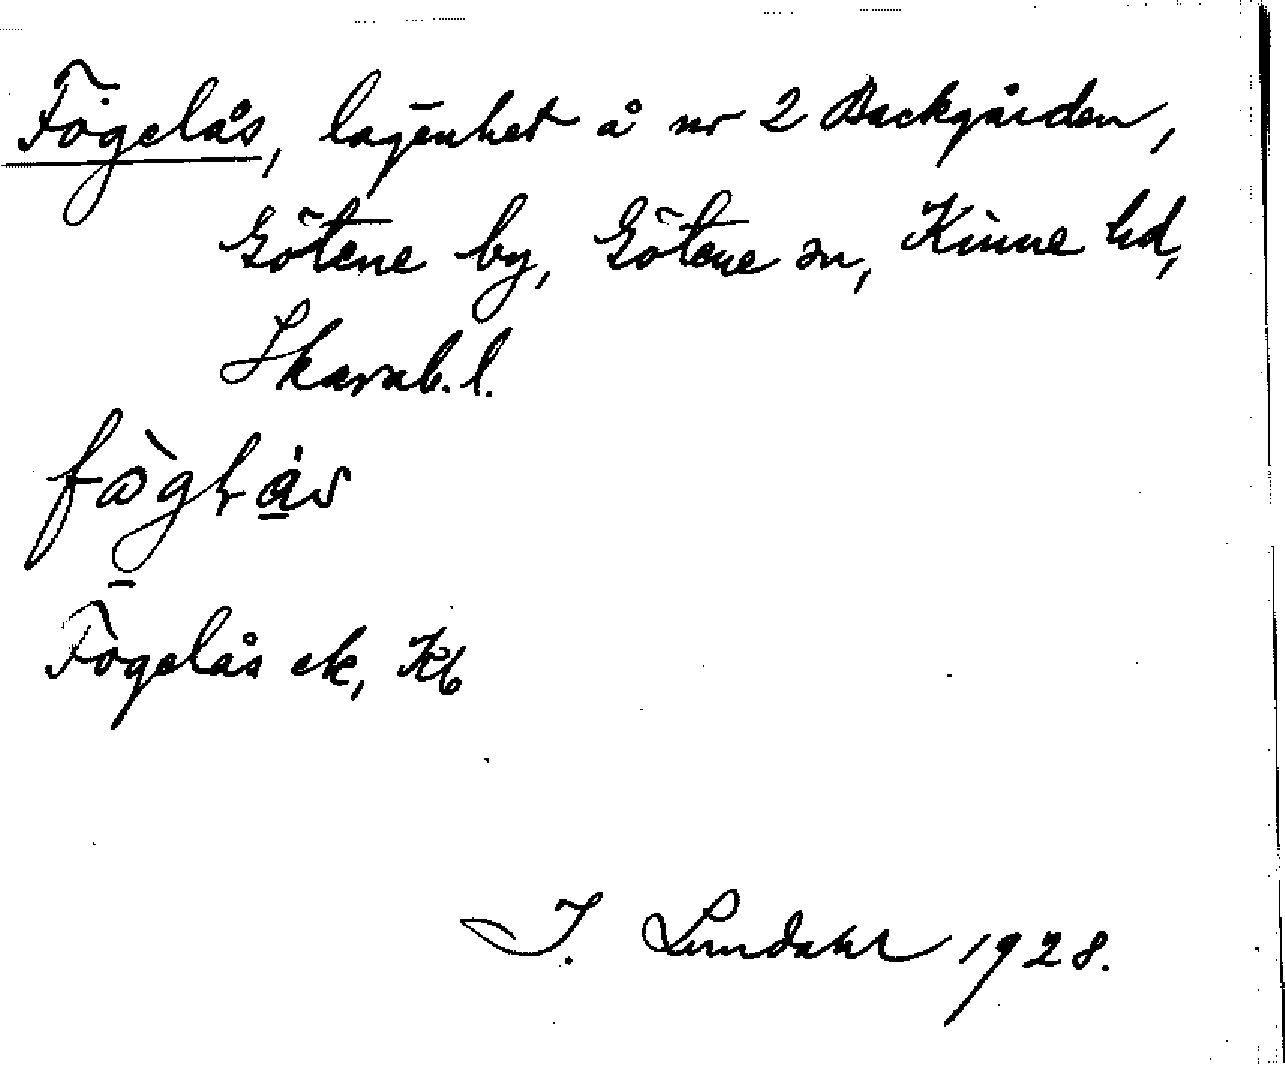 Fögelås, lägenhet å nr 2 Backgården,
Götene by, Götene sn, Kinne hd,
Skarab. l.
Fögelås ek, Kb
I. Lundahl 1928.